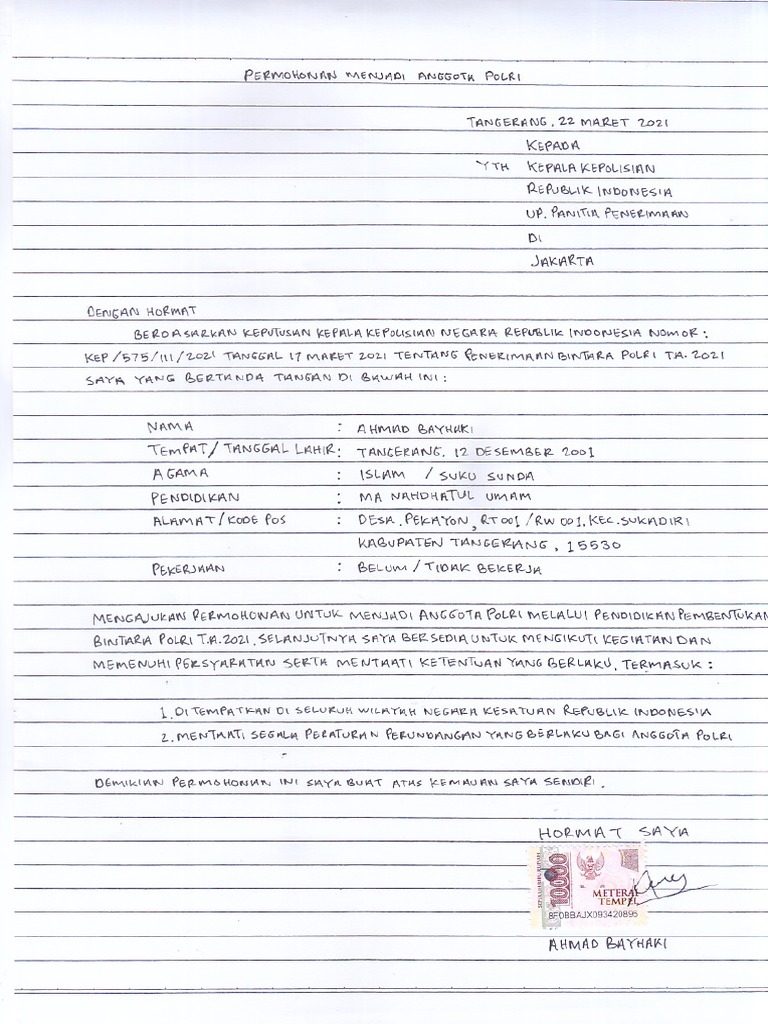 PERMOHONAN MENJADI ANGGOTA POLRI
TANGERANG, 22 MARET 2021
KEPADA
YTH KEPALA KEPOLISIAN
REPUBLIK INDONESIA
UP. PANITIA PENERIMAAN
DI
JAKARTA
DENGAN HORMAT
BERDASARKAN KEPUTUSAN KEPALA KEPOLISIAN NEGARA REPUBLIK INDONESIA NOMOR :
KEP/575/III/2021 TANGGAL 17 MARET 2021 TENTANG PENERIMAAN BINTARA POLRI T.A. 2021
SAYA YANG BERTANDA TANGAN DI BAWAH INI :
NAMA : AHMAD BAYHAKI
TEMPAT/TANGGAL LAHIR : TANGERANG, 12 DESEMBER 2001
AGAMA : ISLAM / SUKU SUNDA
PENDIDIKAN : MA NAHDHATUL UMAM
ALAMAT/KODE POS : DESA. PEKAYON, RT 001/RW 001, KEC. SUKADIRI
KABUPATEN TANGERANG, 15530
PEKERJAAN : BELUM/TIDAK BEKERJA
MENGAJUKAN PERMOHONAN UNTUK MENJADI ANGGOTA POLRI MELALUI PENDIDIKAN PEMBENTUKAN
BINTARA POLRI T.A. 2021. SELANJUTNYA SAYA BERSEDIA UNTUK MENGIKUTI KEGIATAN DAN
MEMENUHI PERSYARATAN SERTA MENTAATI KETENTUAN YANG BERLAKU, TERMASUK :
1. DI TEMPATKAN DI SELURUH WILAYAH NEGARA KESATUAN REPUBLIK INDONESIA
2. MENTAATI SEGALA PERATURAN PERUNDANGAN YANG BERLAKU BAGI ANGGOTA POLRI
DEMIKIAN PERMOHONAN INI SAYA BUAT ATAS KEMAUAN SAYA SENDIRI.
HORMAT SAYA
10000
METERAI
TEMPEL
8F0BBAJX093420895
AHMAD BAYHAKI